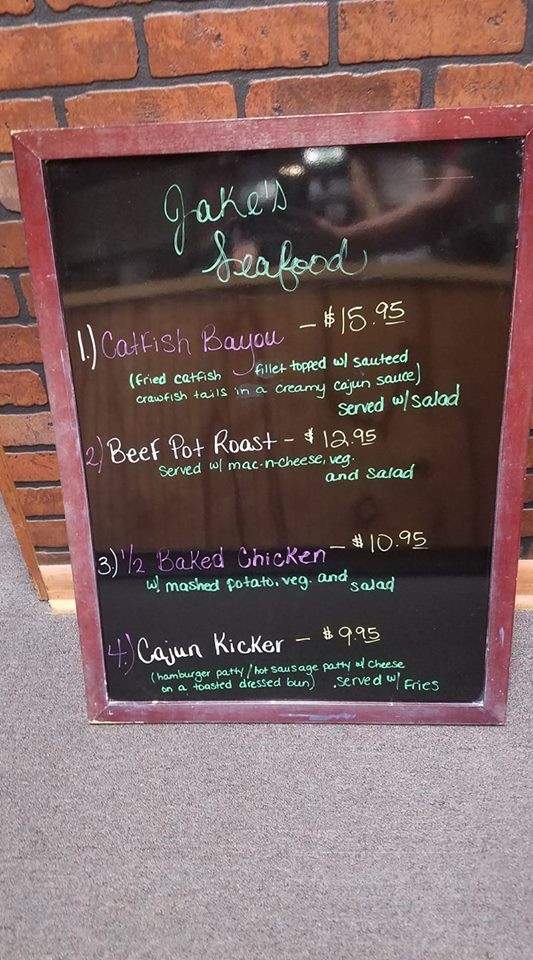 Jake's
Seafood
1.) Catfish Bayou - $15.95
(fried catfish fillet topped w/ sauteed
crawfish tails in a creamy cajun sauce)
served w/ salad
2) Beef Pot Roast - $12.95
Served w/ mac-n-cheese, veg.
and salad
3.) 1/2 Baked Chicken - $10.95
w/ mashed potato, veg. and
salad
4.) Cajun Kicker - $9.95
(hamburger patty/hot sausage patty w/ cheese
on a toasted dressed bun) .served w/ Fries